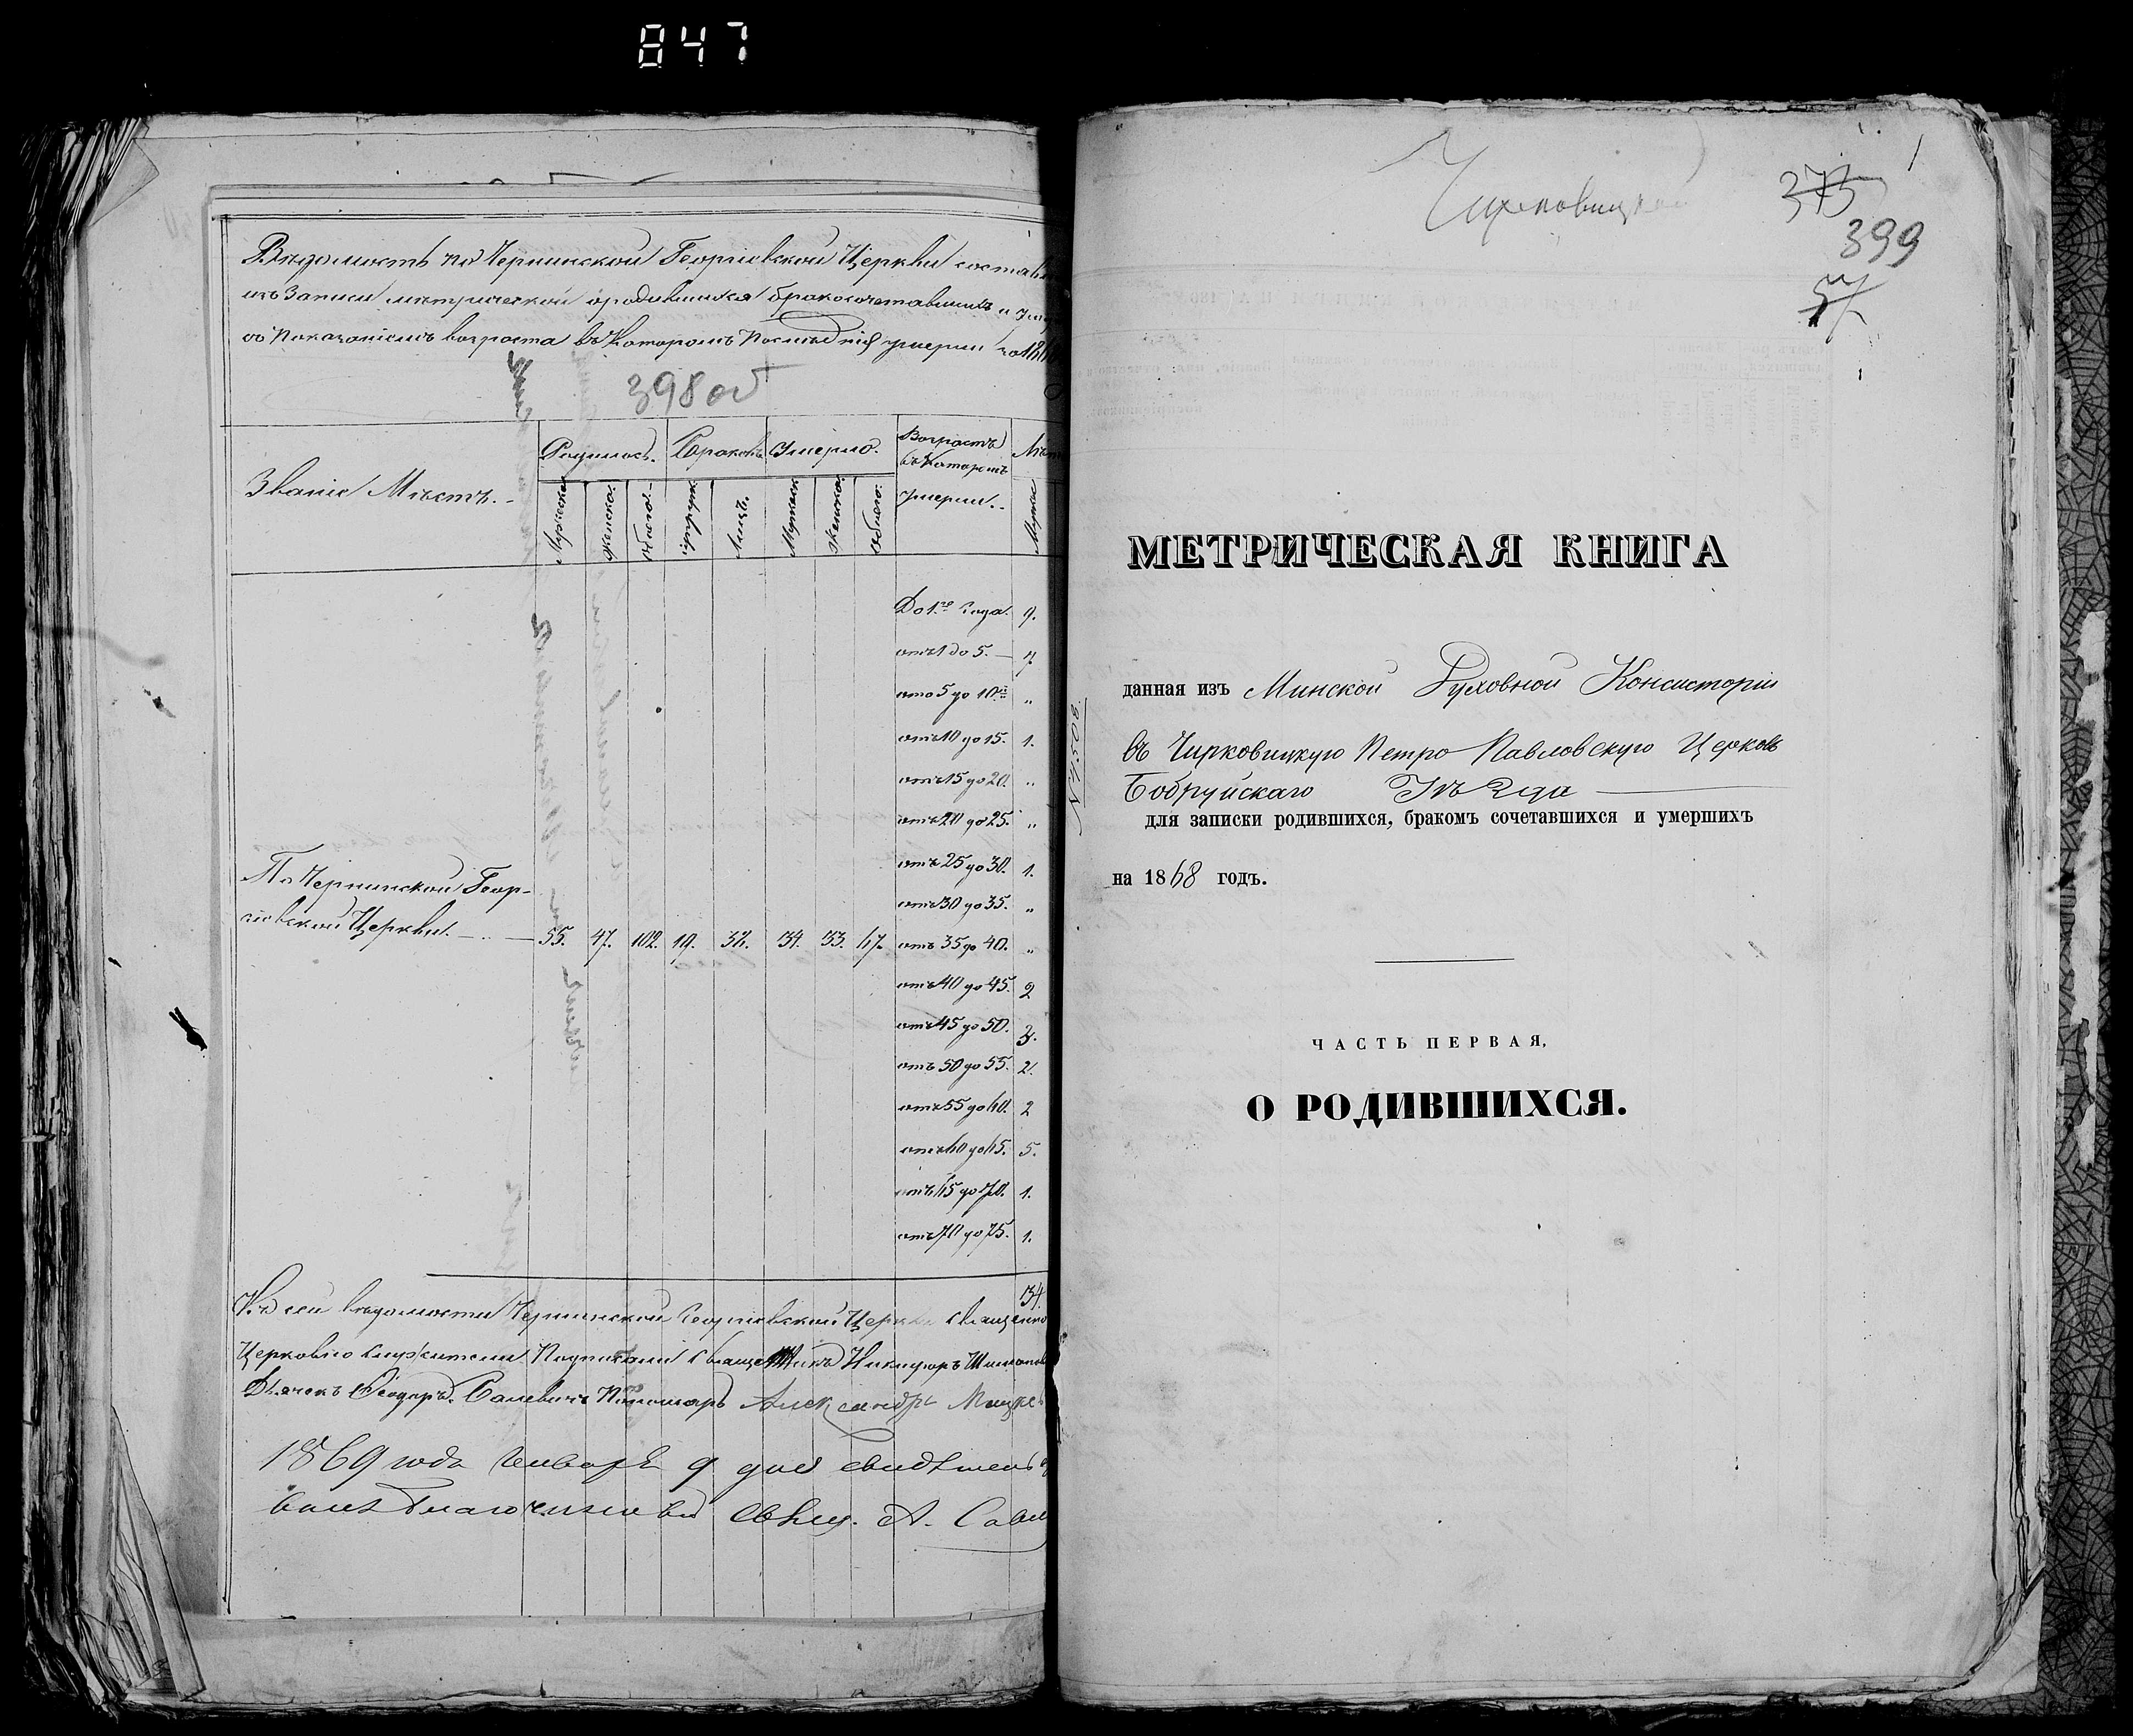 847
Вѣдомость по Чернинской Георгіевской Церкви
изъ Записи метрической о родившихся бракосочетавшихъ и
съ Показаніемъ возраста въ которомъ Послѣдніе умерли
398 об
Званіе Мѣстъ.
Родилось.
Браковъ
Умерло.
Возрастъ въ Которомъ умерли.
Мужеска
Женска.
Обоего.
Супруж
Лицъ.
Мужеск
Женска.
Обоего.
Мужес
До 1го Года. 9.
отъ 1 до 5. — 7.
отъ 5 до 10ти "
отъ 10 до 15. 1.
отъ 15 до 20. "
отъ 20 до 25. "
отъ 25 до 30. 1.
отъ 30 до 35. "
По Чернинской Геор-
гіевской Церкви. — 55. 47. 102. 19. 38. 34. 33. 67. отъ 35 до 40. "
отъ 40 до 45. 2
отъ 45 до 50. 3.
отъ 50 до 55. 2.
отъ 55 до 60. 2
отъ 60 до 65. 5.
отъ 65 до 70. 1.
отъ 70 до 75. 1.
34.
Къ сей вѣдомости Чернинской Георгіевской Церкви Священно
Церковно служители Подписали Священникъ Никифоръ
Дьячекъ Ѳеодоръ Пономарь Александръ
1869 года Января 9 дня
Благочинный Свящ. А.
Чирковицкой
1
375
399
57
N 4508
МЕТРИЧЕСКАЯ КНИГА
данная изъ Минской Духовной Консисторіи
въ Чирковицкую Петро Павловскую Церковь
Бобруйскаго Уѣзда
для записки родившихся, бракомъ сочетавшихся и умершихъ
на 1868 годъ.
ЧАСТЬ ПЕРВАЯ,
О РОДИВШИХСЯ.